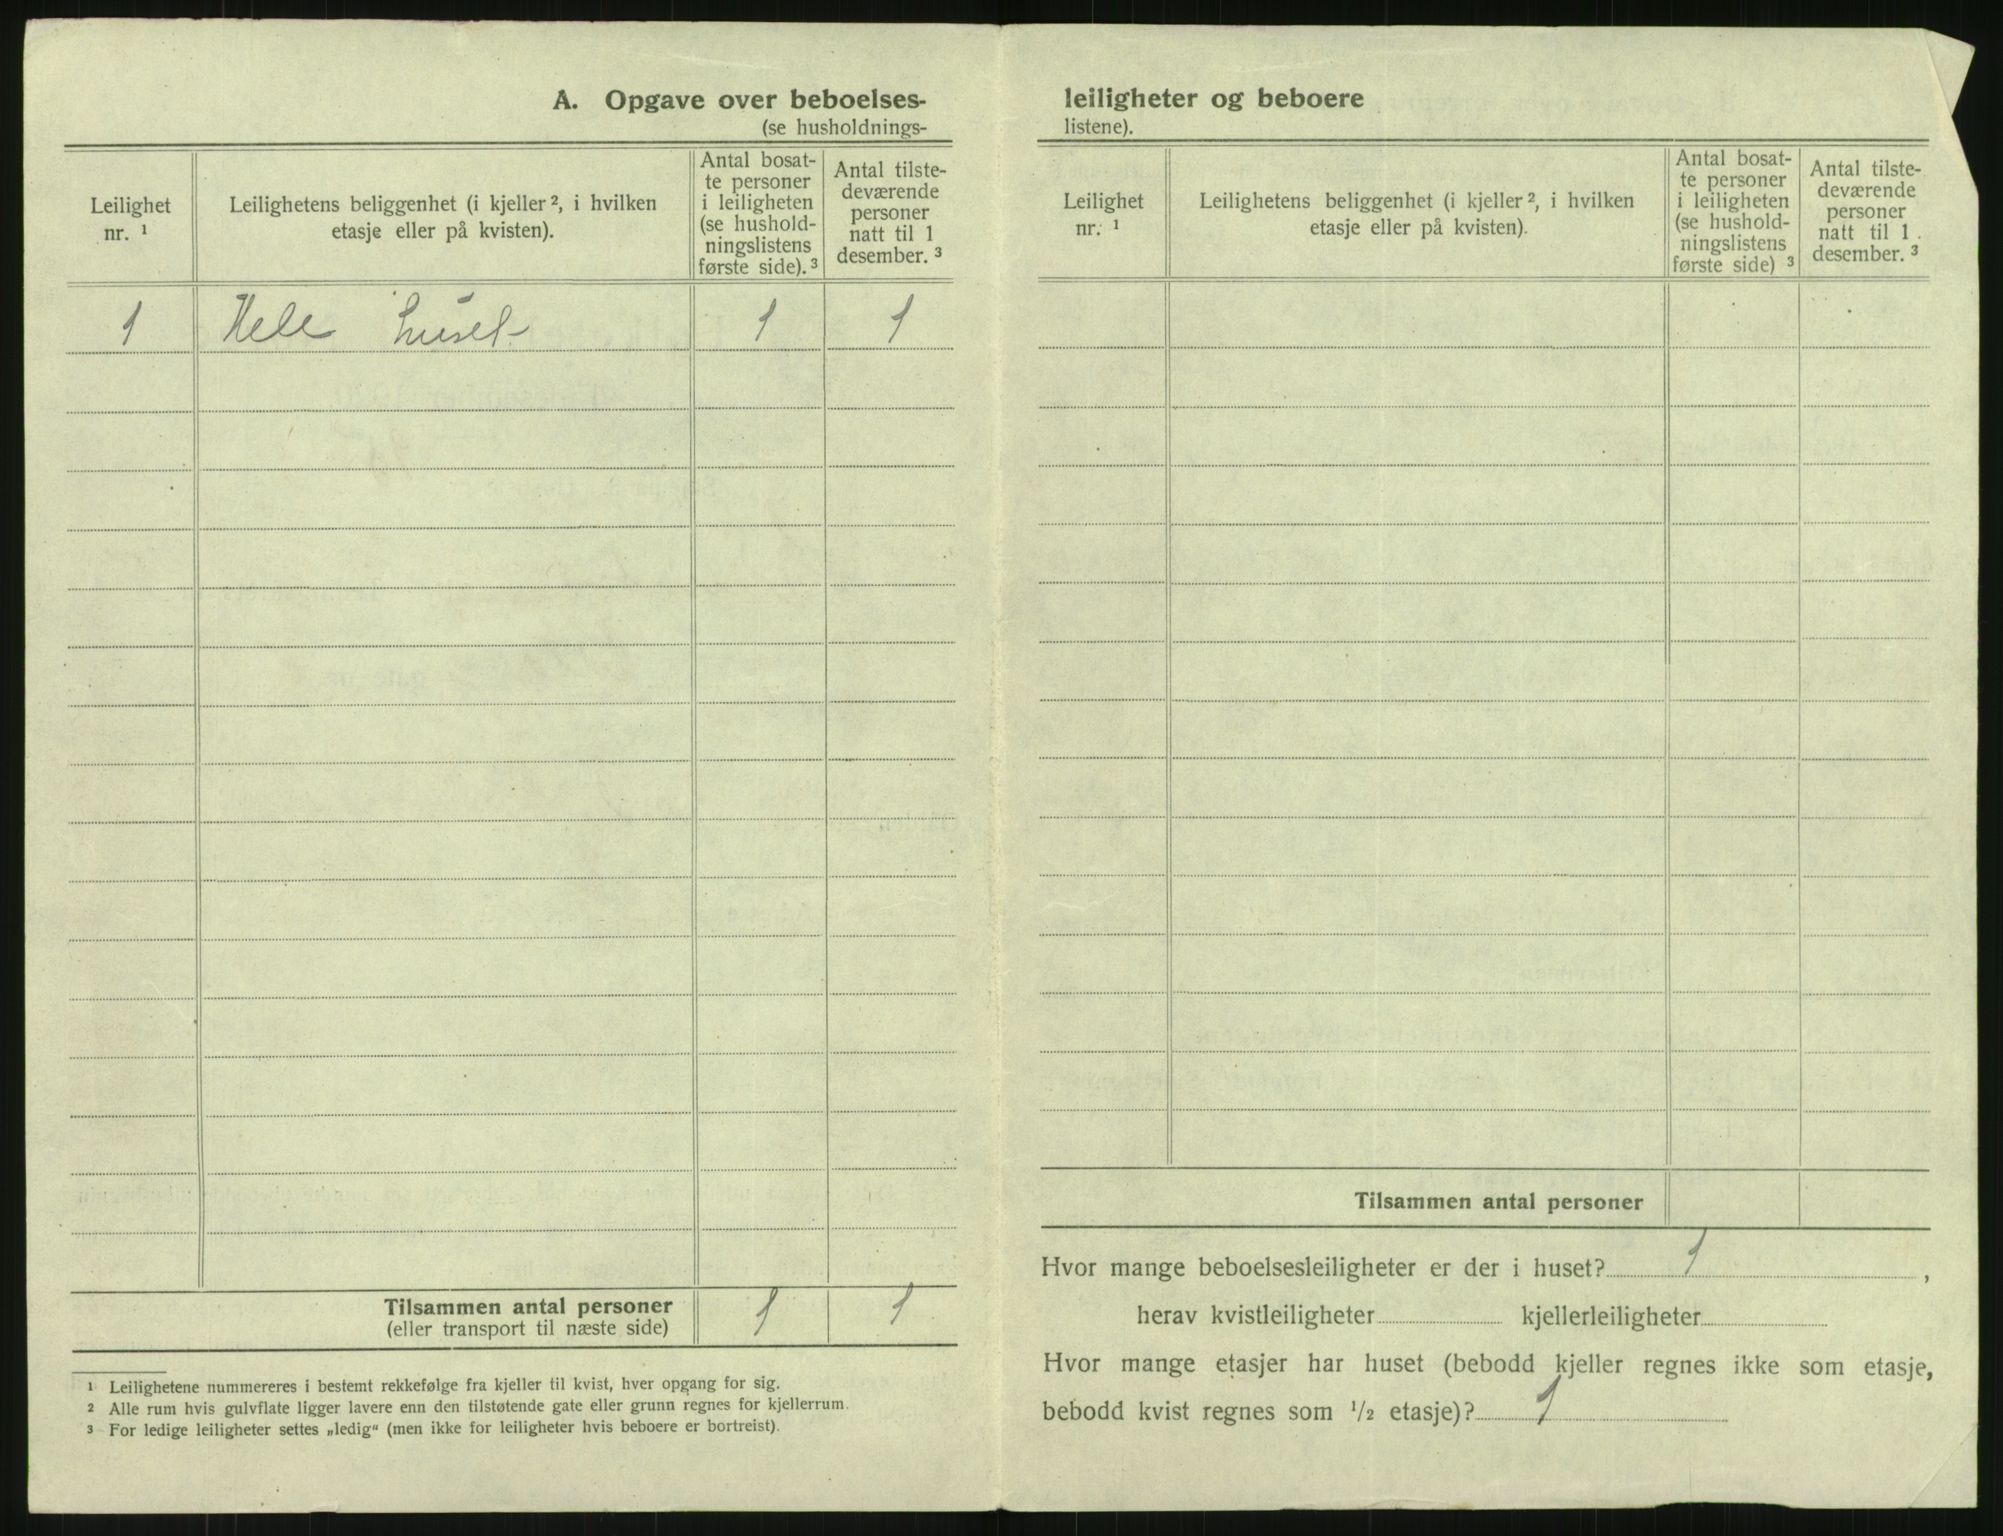 A. Opgave over beboelses-
(se husholdnings-
Leilighet
nr. ¹
Leilighetens beliggenhet (i kjeller ², i hvilken
etasje eller på kvisten).
Antal bosat-
te personer
i leiligheten
(se hushold-
ningslistens
første side). ³
Antal tilste-
deværende
personer
natt til 1
desember. ³
1 Hele huset 1 1
Tilsammen antal personer 1 1
(eller transport til næste side)
¹ Leilighetene nummereres i bestemt rekkefølge fra kjeller til kvist, hver opgang for sig.
² Alle rum hvis gulvflate ligger lavere enn den tilstøtende gate eller grunn regnes for kjellerrum.
³ For ledige leiligheter settes „ledig“ (men ikke for leiligheter hvis beboere er bortreist).
leiligheter og beboere
listene).
Leilighet
nr. ¹
Leilighetens beliggenhet (i kjeller ², i hvilken
etasje eller på kvisten).
Antal bosat-
te personer
i leiligheten
(se hushold-
ningslistens
første side) ³
Antal tilste-
deværende
personer
natt til 1
desember. ³
Tilsammen antal personer
Hvor mange beboelsesleiligheter er der i huset? 1 ,
herav kvistleiligheter kjellerleiligheter
Hvor mange etasjer har huset (bebodd kjeller regnes ikke som etasje,
bebodd kvist regnes som ½ etasje)? 1